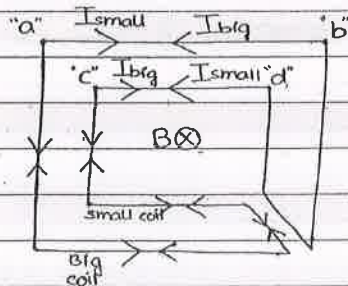 "a" Ismall Ibig "b"
"c" Ibig Ismall "d"
B⊗
small coil
Big
coil